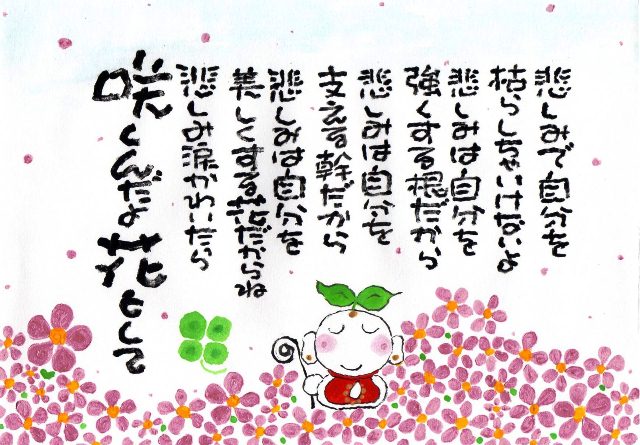 悲しみで自分を
枯らしちゃいけないよ
悲しみは自分を
強くする根だから
悲しみは自分を
支える幹だから
悲しみは自分を
美しくする花だからね
悲しみ涙かわいたら
咲くんだよ花として